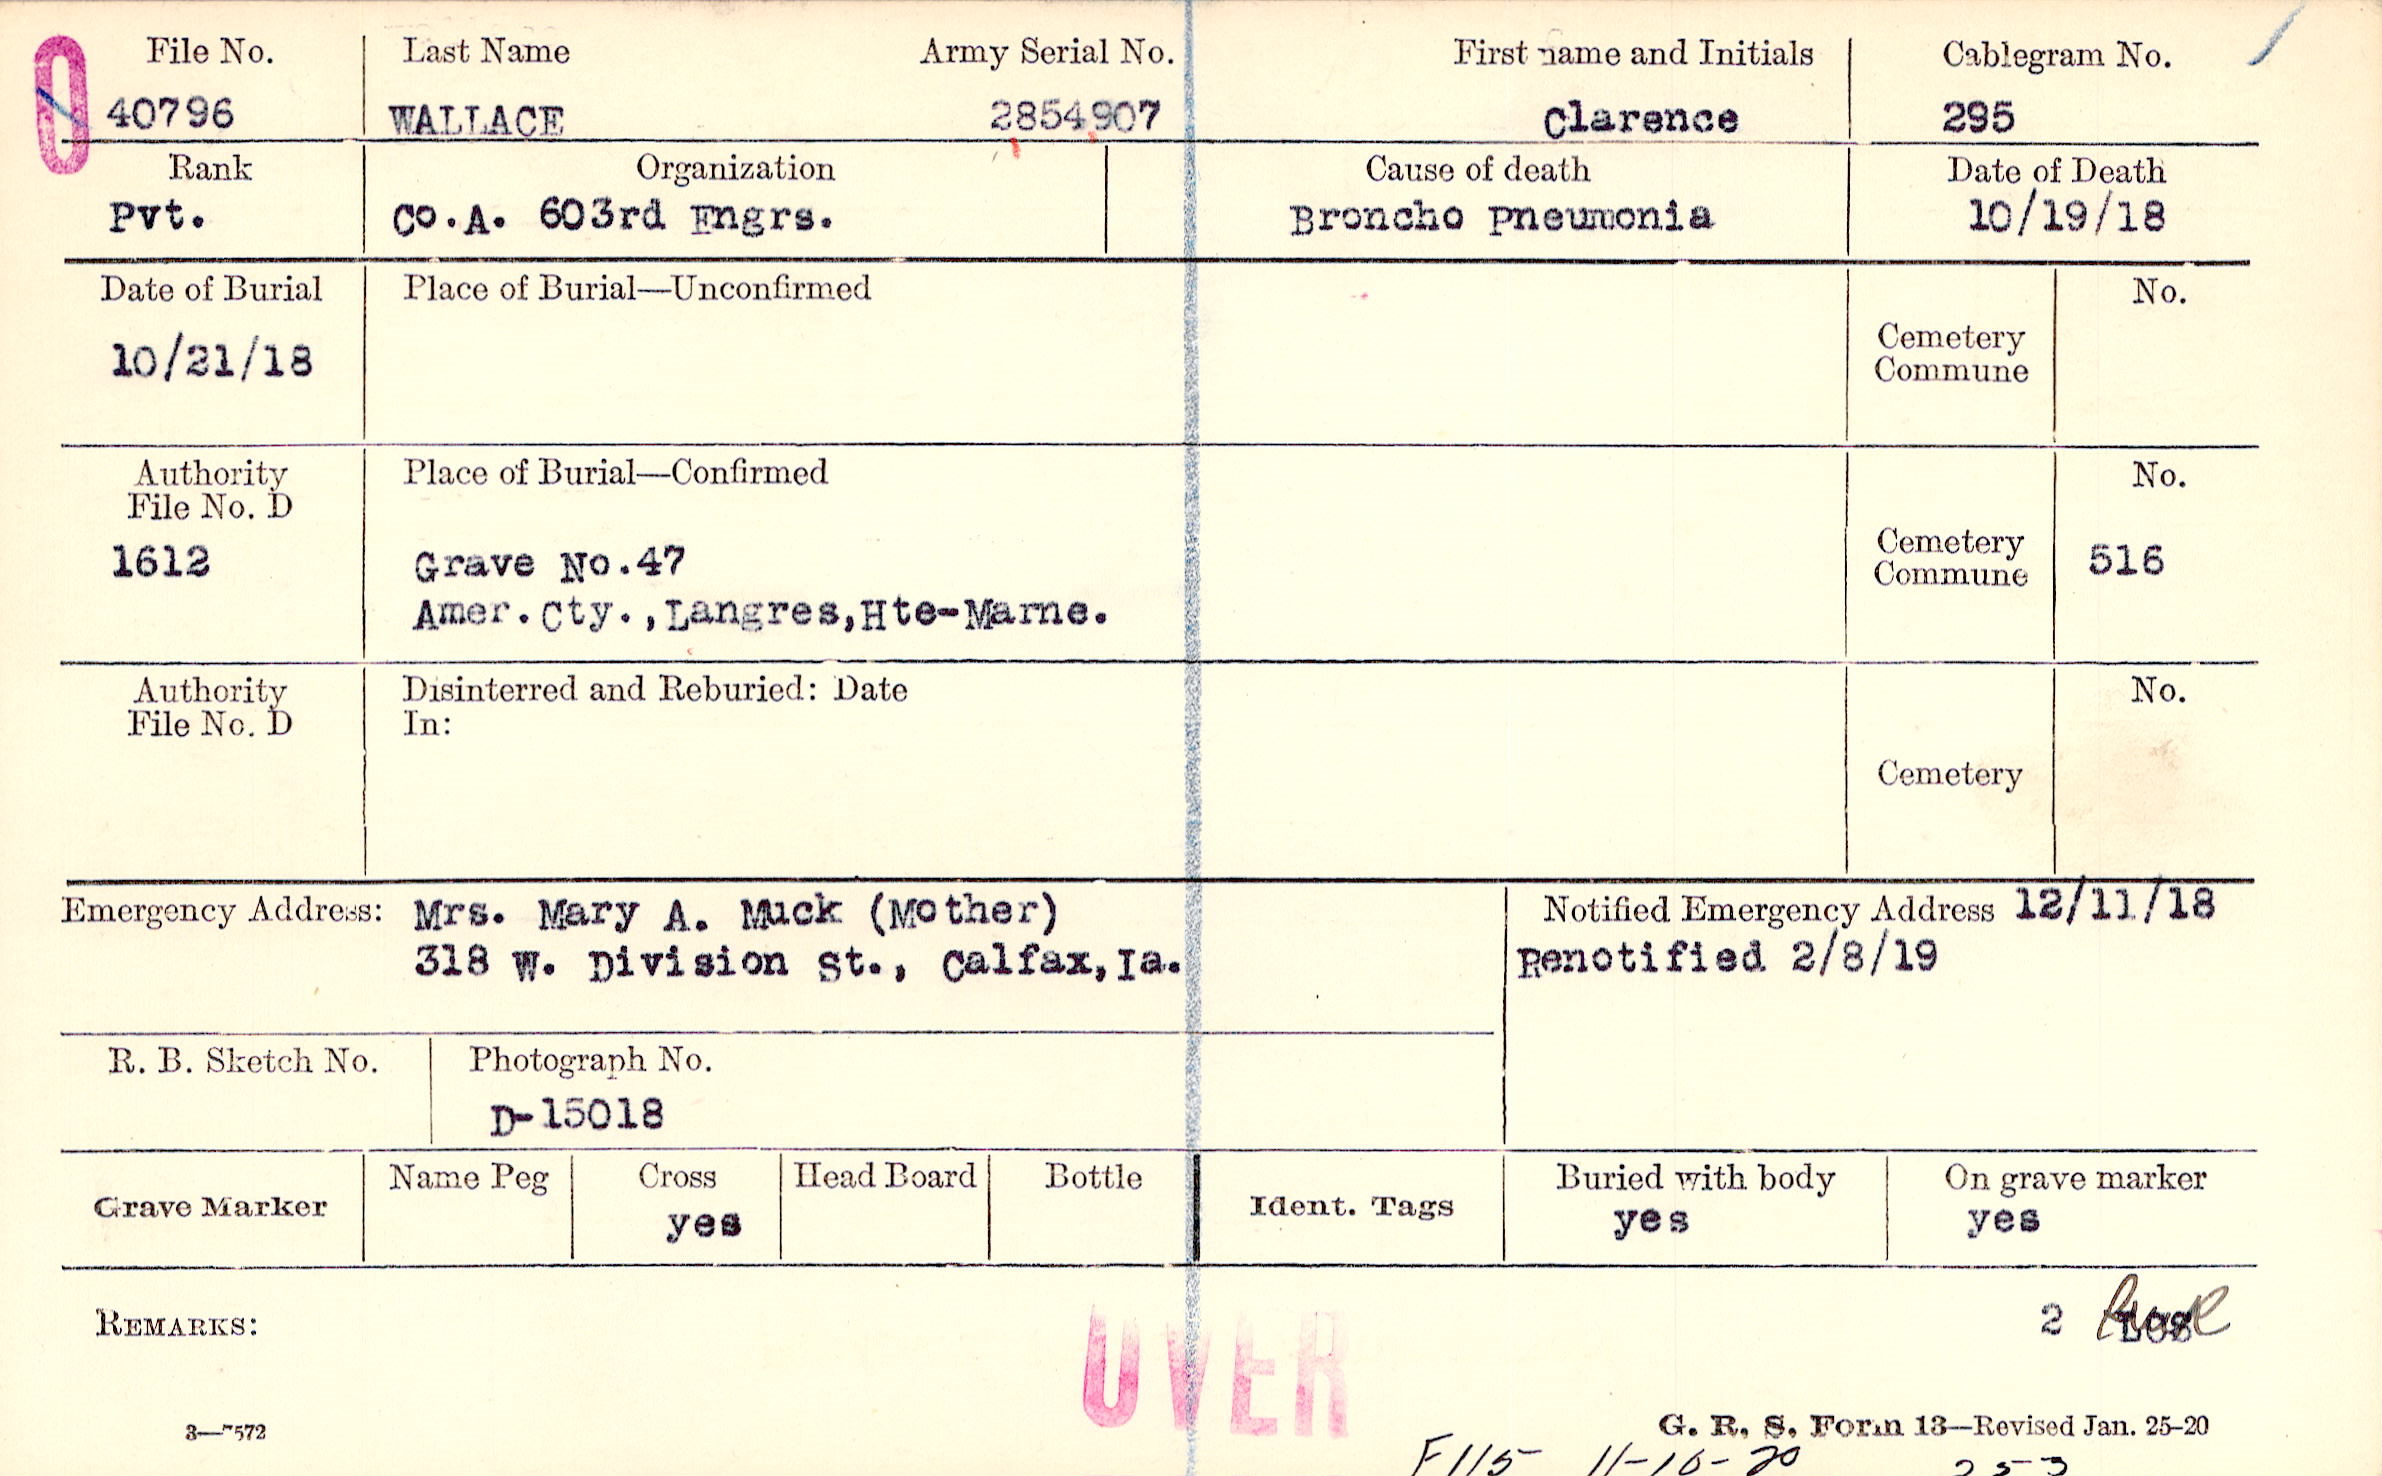 O
File No. Last Name Army Serial No. First name and Initials Cablegram No.
40796 WALLACE 2854907 Clarence 295
Rank Organization Cause of death Date of Death
Pvt. Co.A. 603rd Engrs. Broncho Pneumonia 10/19/18
Date of Burial Place of Burial—Unconfirmed No.
10/21/18
Cemetery
Commune
Authority Place of Burial—Confirmed No.
File No. D
1612 Grave No.47 Cemetery 516
Commune
Amer.Cty.,Langres,Hte-Marne.
Authority Disinterred and Reburied: Date No.
File No. D In:
Cemetery
Emergency Address: Mrs. Mary A. Muck (Mother) Notified Emergency Address 12/11/18
318 W. Division St., Calfax,Ia. Renotified 2/8/19
R. B. Sketch No. Photograph No.
D-15018
Grave Marker Name Peg Cross Head Board Bottle Ident. Tags Buried with body On grave marker
yes yes yes
REMARKS: 2
OVER
3—7572 G. R. S. Form 13—Revised Jan. 25-20
F115 11-16-20 253